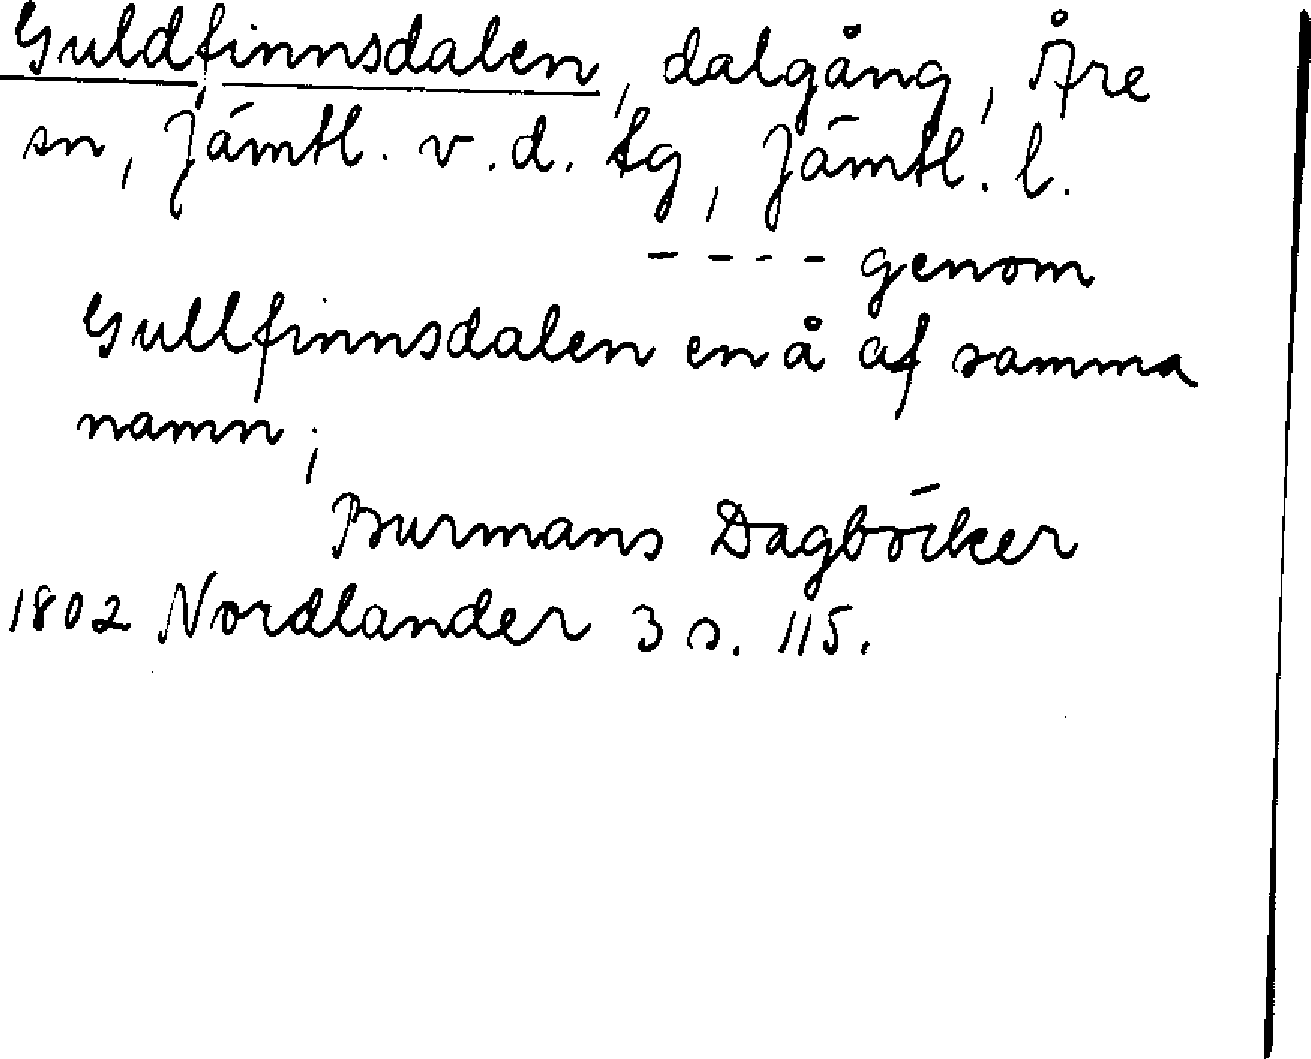 Guldfinnsdalen, dalgång, Åre
sn, Jämtl. v. d. tg, Jämtl. l.
- - - - genom
Gullfinnsdalen en å af samma
namn;
Burmans Dagböcker
1802 Nordlander 3 s. 115.